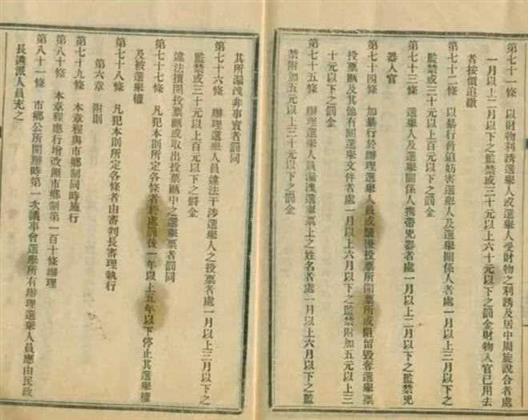 第七十一條　以財物利誘選舉人或選舉人受財物之利誘及居中周旋說合者處
一月以上二月以下之監禁或三十元以上六十元以下之罰金財物入官已用去
者按價追繳
第七十二條　以暴行脅迫妨害選舉人及選舉關係人者處一月以上三月以下之
監禁或三十元以上百元以下之罰金
第七十三條　選舉人及選舉關係人携帶兇器者處一月以上二月以下之監禁兇
器入官
第七十四條　加暴行於辦理選舉人員或騷擾投票所開票所或阻留毀奪選舉票
投票匭及其他有關選舉文件者處一月以上六月以下之監禁附加五元以上三
十元以下之罰金
第七十五條　辦理選舉人員漏洩選舉票上之姓名者處一月以上六月以下之監
禁附加五元以上三十元以下之罰金
其所漏洩非事實者罰同
第七十六條　辦理選舉人員違法干涉選舉人之投票者處一月以上三月以下之
監禁或三十元以上百元以下之罰金
違法擅開投票匭或取出投票匭中之選舉票者罰同
第七十七條　凡犯本則所定各條者於處罰後一年以上五年以下停止其選舉權
及被選舉權
第七十八條　凡犯本則所定各條者由審判長審理執行
第六章　附則
第七十九條　本章程與市鄉制同時施行
第八十條　本章程應行增改照市鄉制第一百十條辦理
第八十一條　市鄉公所開辦時第一次議事會選舉所有辦理選舉人員應由民政
長選派人員充之